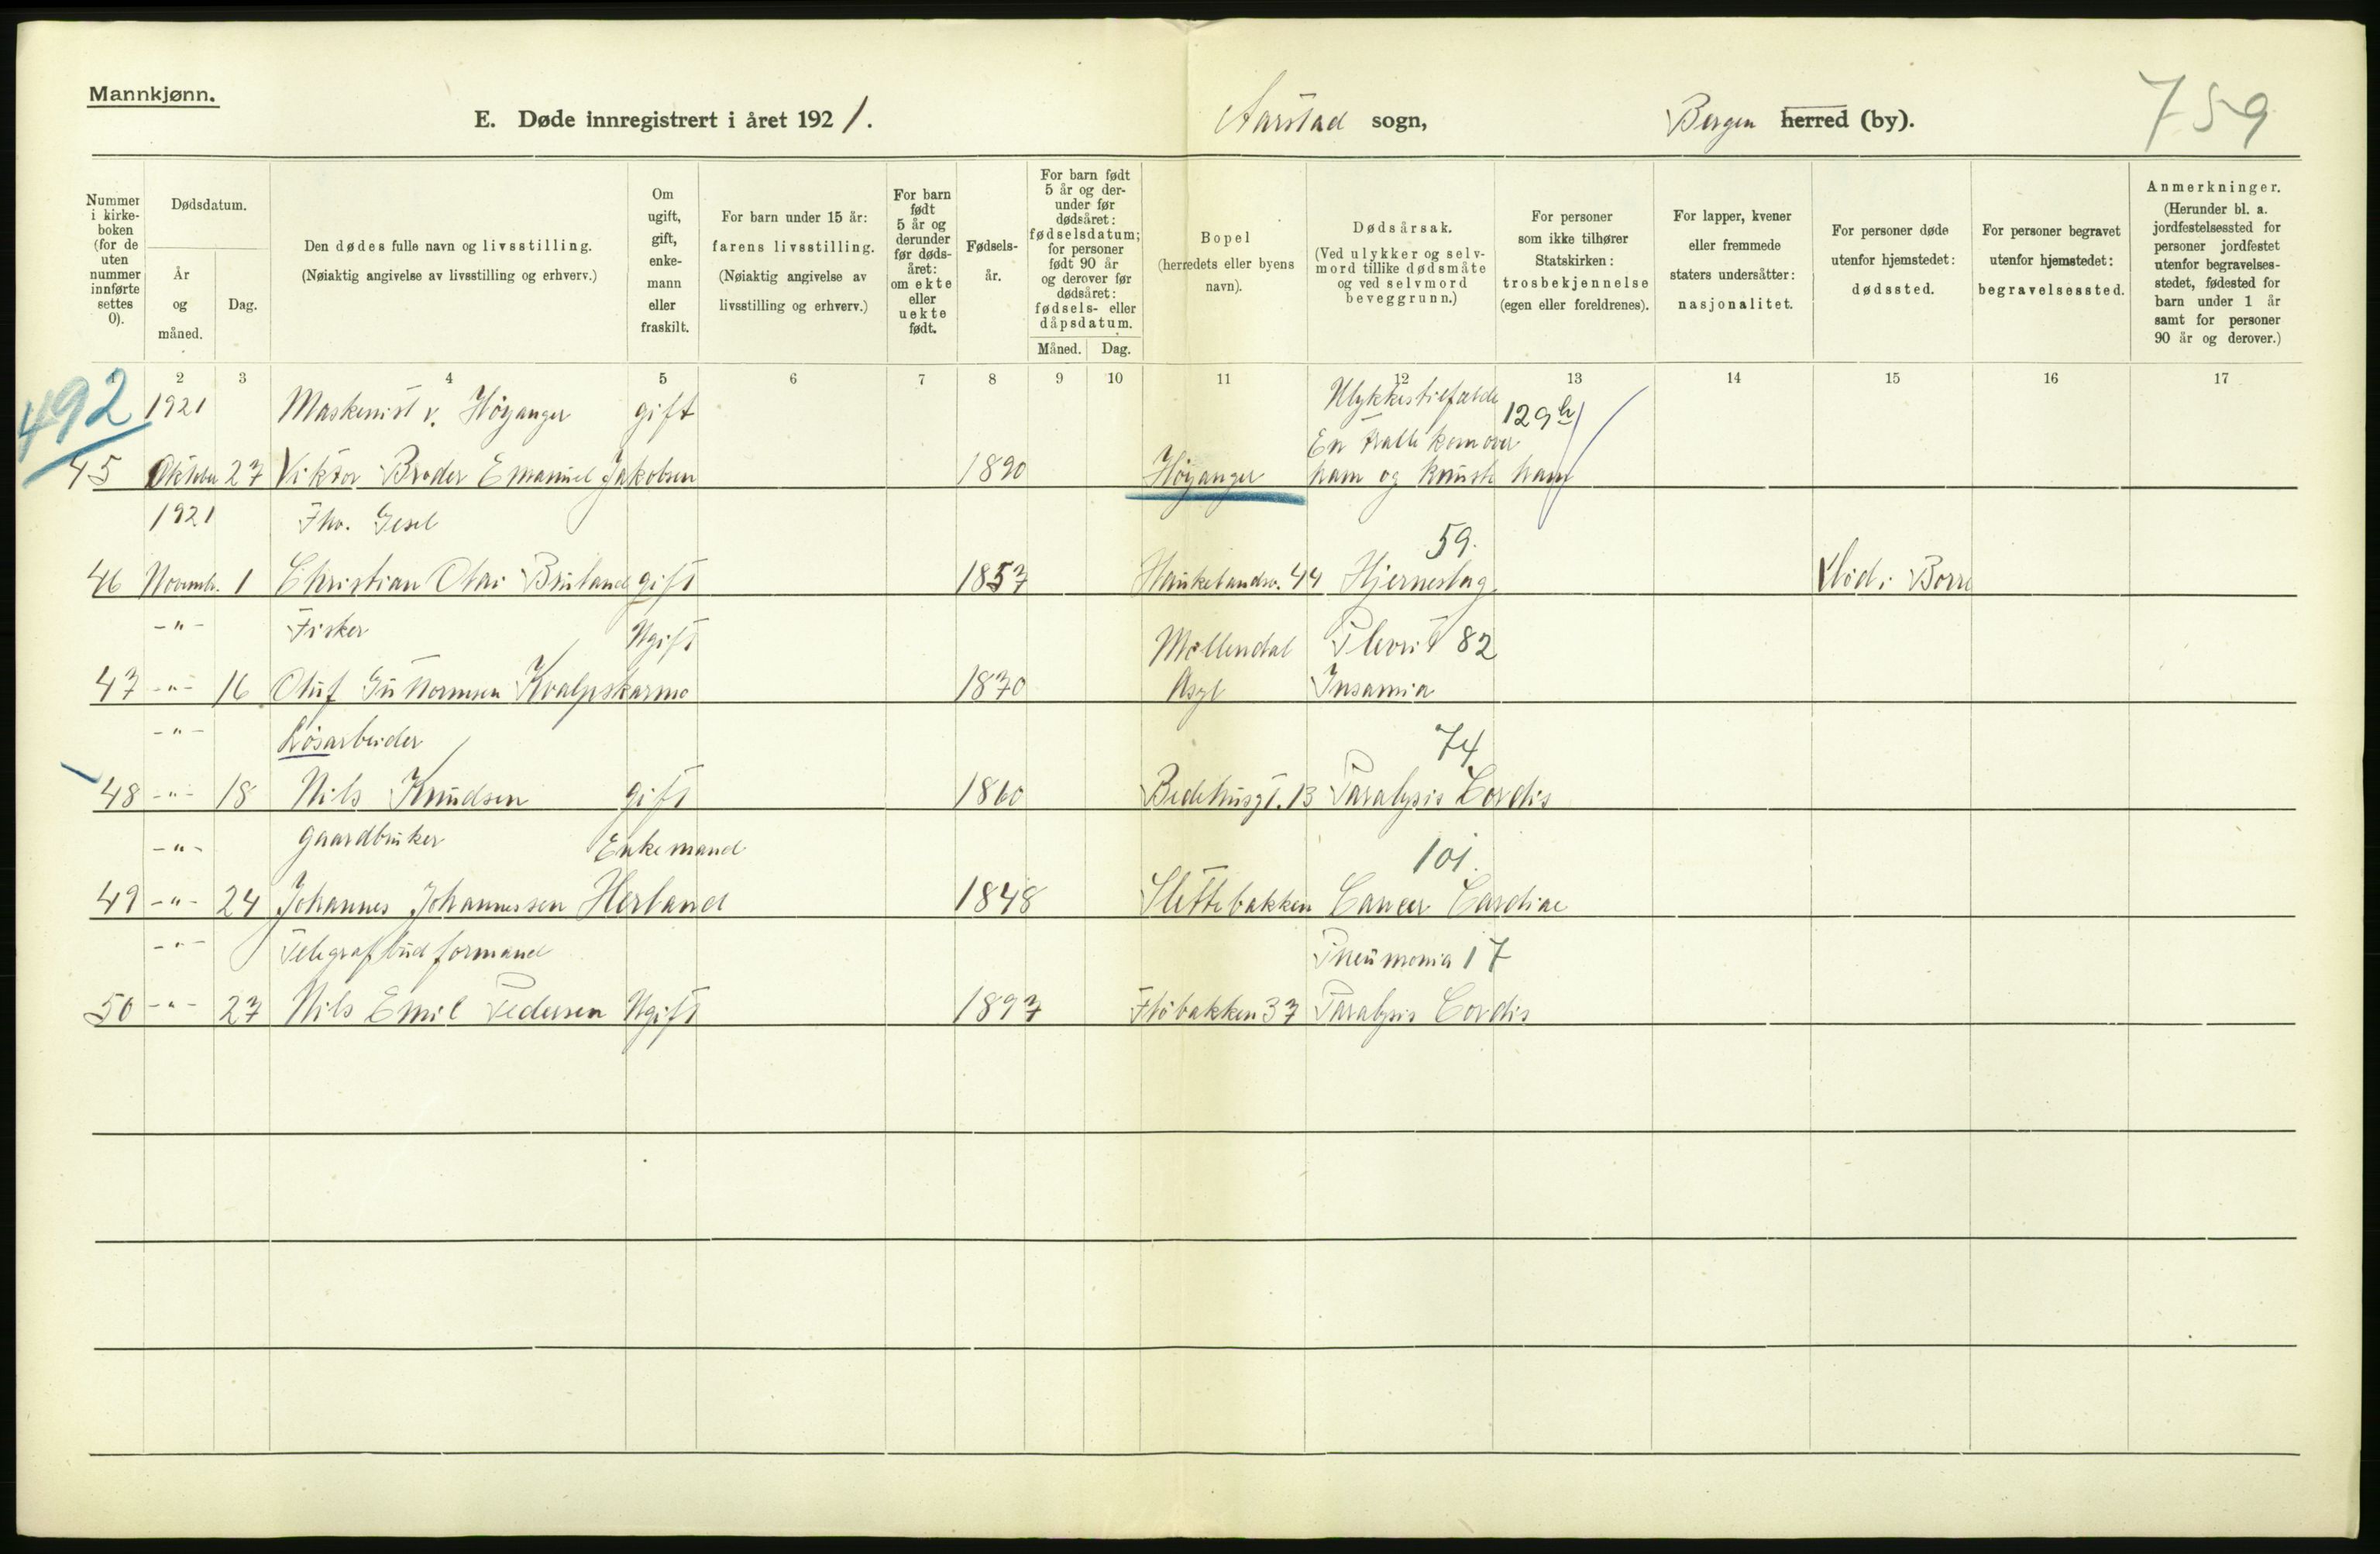 Mannkjønn.
E. Døde innregistrert i året 1921. Aarstad sogn, Bergen herred (by). 759
Nummer i kirkeboken (for de uten nummer innførte settes 0).
Dødsdatum.
År og måned.
Dag.
Den dødes fulle navn og livsstilling.
(Nøiaktig angivelse av livsstilling og erhverv.)
Om ugift, gift, enkemann eller fraskilt.
For barn under 15 år: farens livsstilling.
(Nøiaktig angivelse av livsstilling og erhverv.)
For barn født 5 år og derunder før dødsåret: om ekte eller uekte født.
Fødselsår.
For barn født 5 år og derunder før dødsåret: fødselsdatum; for personer født 90 år og derover før dødsåret: fødsels- eller dåpsdatum.
Måned. Dag.
Bopel
(herredets eller byens navn).
Dødsårsak.
(Ved ulykker og selvmord tillike dødsmåte og ved selvmord beveggrunn.)
For personer som ikke tilhører Statskirken: trosbekjennelse (egen eller foreldrenes).
For lapper, kvener eller fremmede staters undersåtter: nasjonalitet.
For personer døde utenfor hjemstedet: dødssted.
For personer begravet utenfor hjemstedet: begravelsessted.
Anmerkninger.
(Herunder bl. a. jordfestelsessted for personer jordfestet utenfor begravelsesstedet, fødested for barn under 1 år samt for personer 90 år og derover.)
1 2 3 4 5 6 7 8 9 10 11 12 13 14 15 16 17
492
1921 Maskenist v. Höyanger gift Ulykkestilfælde 129 h
En tralle kom over
45 Oktober 27 Viktor Broder Emanuel Jakobsen 1890 Höyanger ham og knuste ham
1921 Fhv. Gesel 59.
46 Novemb. 1 Christian Olai Bruland gift 1857 Haukelandsv. 44 Hjerneslag Död i Borre
-"- Fisker Ugift Möllendal Plevrit 82
47 -"- 16 Oluf Guttormsen Kvalpskarmo 1870 Asyl Insania
-"- Lösarbeider 74
48 -"- 18 Nils Knudsen gift 1860 Bedehusgt. 13 Paralysis Cordis
-"- Gaardbruker Enkemand 101.
49 -"- 24 Johannes Johannessen Herland 1848 Slettebakken Cancer Cardiae
-"- Telegrafbudformand Pneumonia 17
50 -"- 27 Nils Emil Pedersen Ugift 1897 Flöbakken 37 Paralysis Cordis